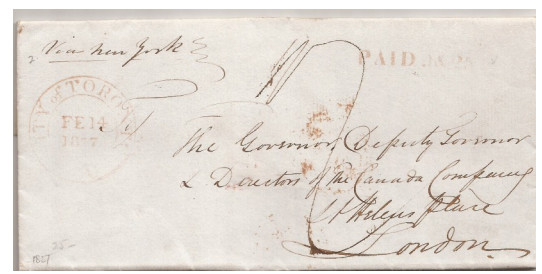 Via new York
PAID
CITY of TORONTO
FE 14
1837
The Governor, Deputy Governor
& Directors of the Canada Company
St Helens Place
London